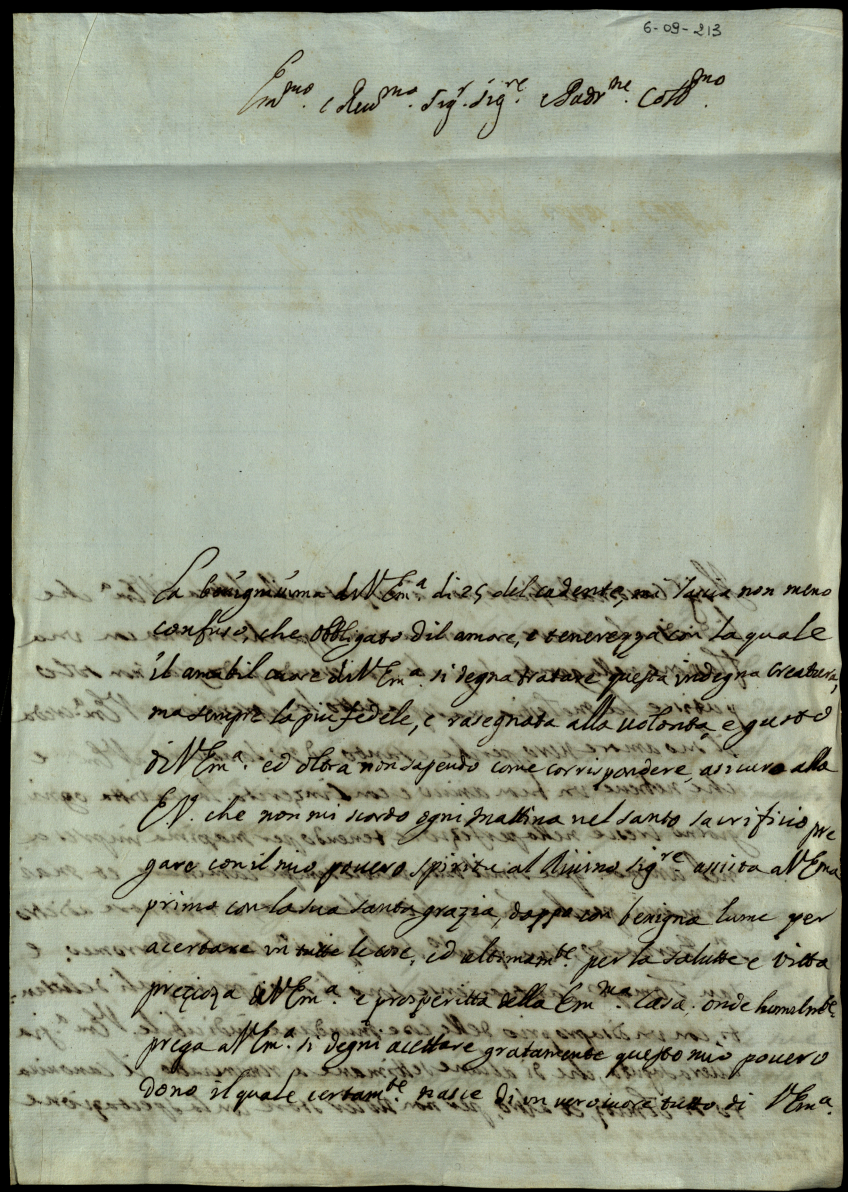 6-09-213
Em.mo e Reu.mo Sig.r Sig.re e Padr.ne Coll.mo
La benigniuma di V Em.a di 25 del cadente, mi lascia non meno
confuso, che obbligato dil amore, e tenerezza con la quale
il amabil cuore di V Em.a si degna tratare questa indegna creatura,
ma sempre la piu fedele, e rasegnata alla volontà e gusto
di V Em.a ed oltra non sapendo come corrispondere, asicuro alla
E V. che non mi scordo ogni mattina nel santo sacrificio pre
gare con il mio povero spirito al Divino Sig.re assista a V Em.a
primo con la sua santa grazia, doppo con benigna lume per
acertare in tutte le cose, ed ultimam.te per la salutte e vitta
prezioza di V Em.a e prosperitta della Em.ma casa. onde humelm.te
prega a V Em.a si degni acettare gratamente questo mio povero
dono il quale certam.te nasce di un vero cuore tutto di V Em.a